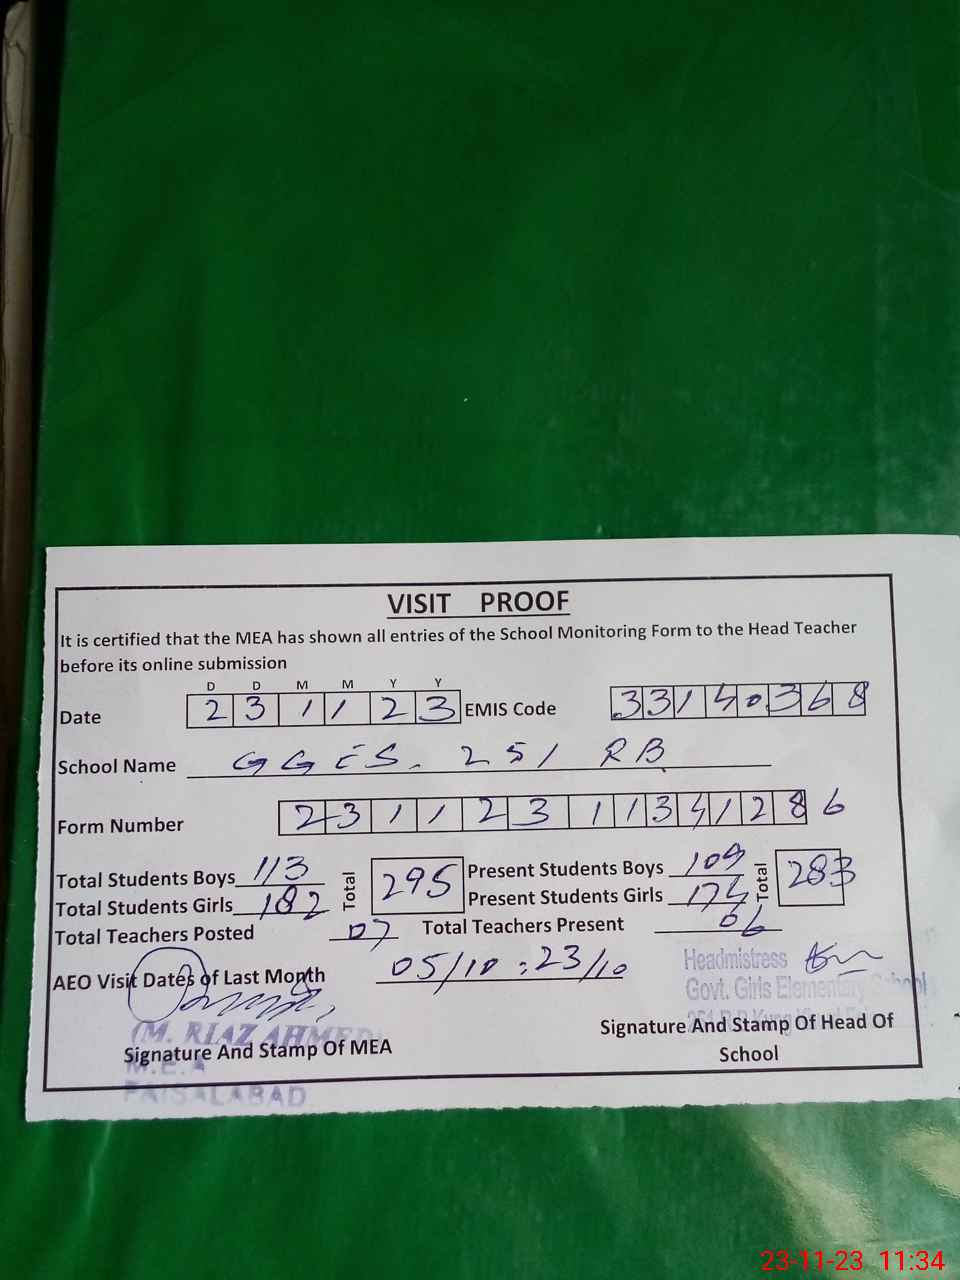 VISIT PROOF
It is certified that the MEA has shown all entries of the School Monitoring Form to the Head Teacher
before its online submission
D D M M Y Y
Date 2 3 1 1 2 3 EMIS Code 3 3 1 4 0 3 6 8
School Name GGES. 251 RB
Form Number 2 3 1 1 2 3 1 1 3 4 1 2 8 6
Total Students Boys 113 Total 295 Present Students Boys 109 Total 283
Total Students Girls 182 Present Students Girls 174
Total Teachers Posted 07 Total Teachers Present 06
AEO Visit Dates of Last Month 05/10 : 23/10
Headmistress
Govt. Girls Elementary School
(M. RIAZ AHMED)
Signature And Stamp Of MEA
M.E.A
FAISALABAD
Signature And Stamp Of Head Of
School
23-11-23 11:34